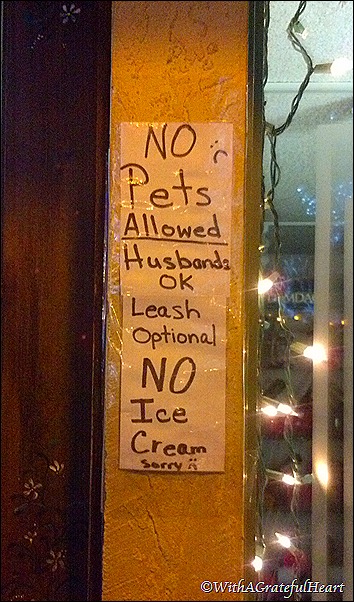 NO :(
Pets
Allowed
Husbands
OK
Leash
Optional
NO
Ice
Cream
Sorry :(
©WithAGratefulHeart